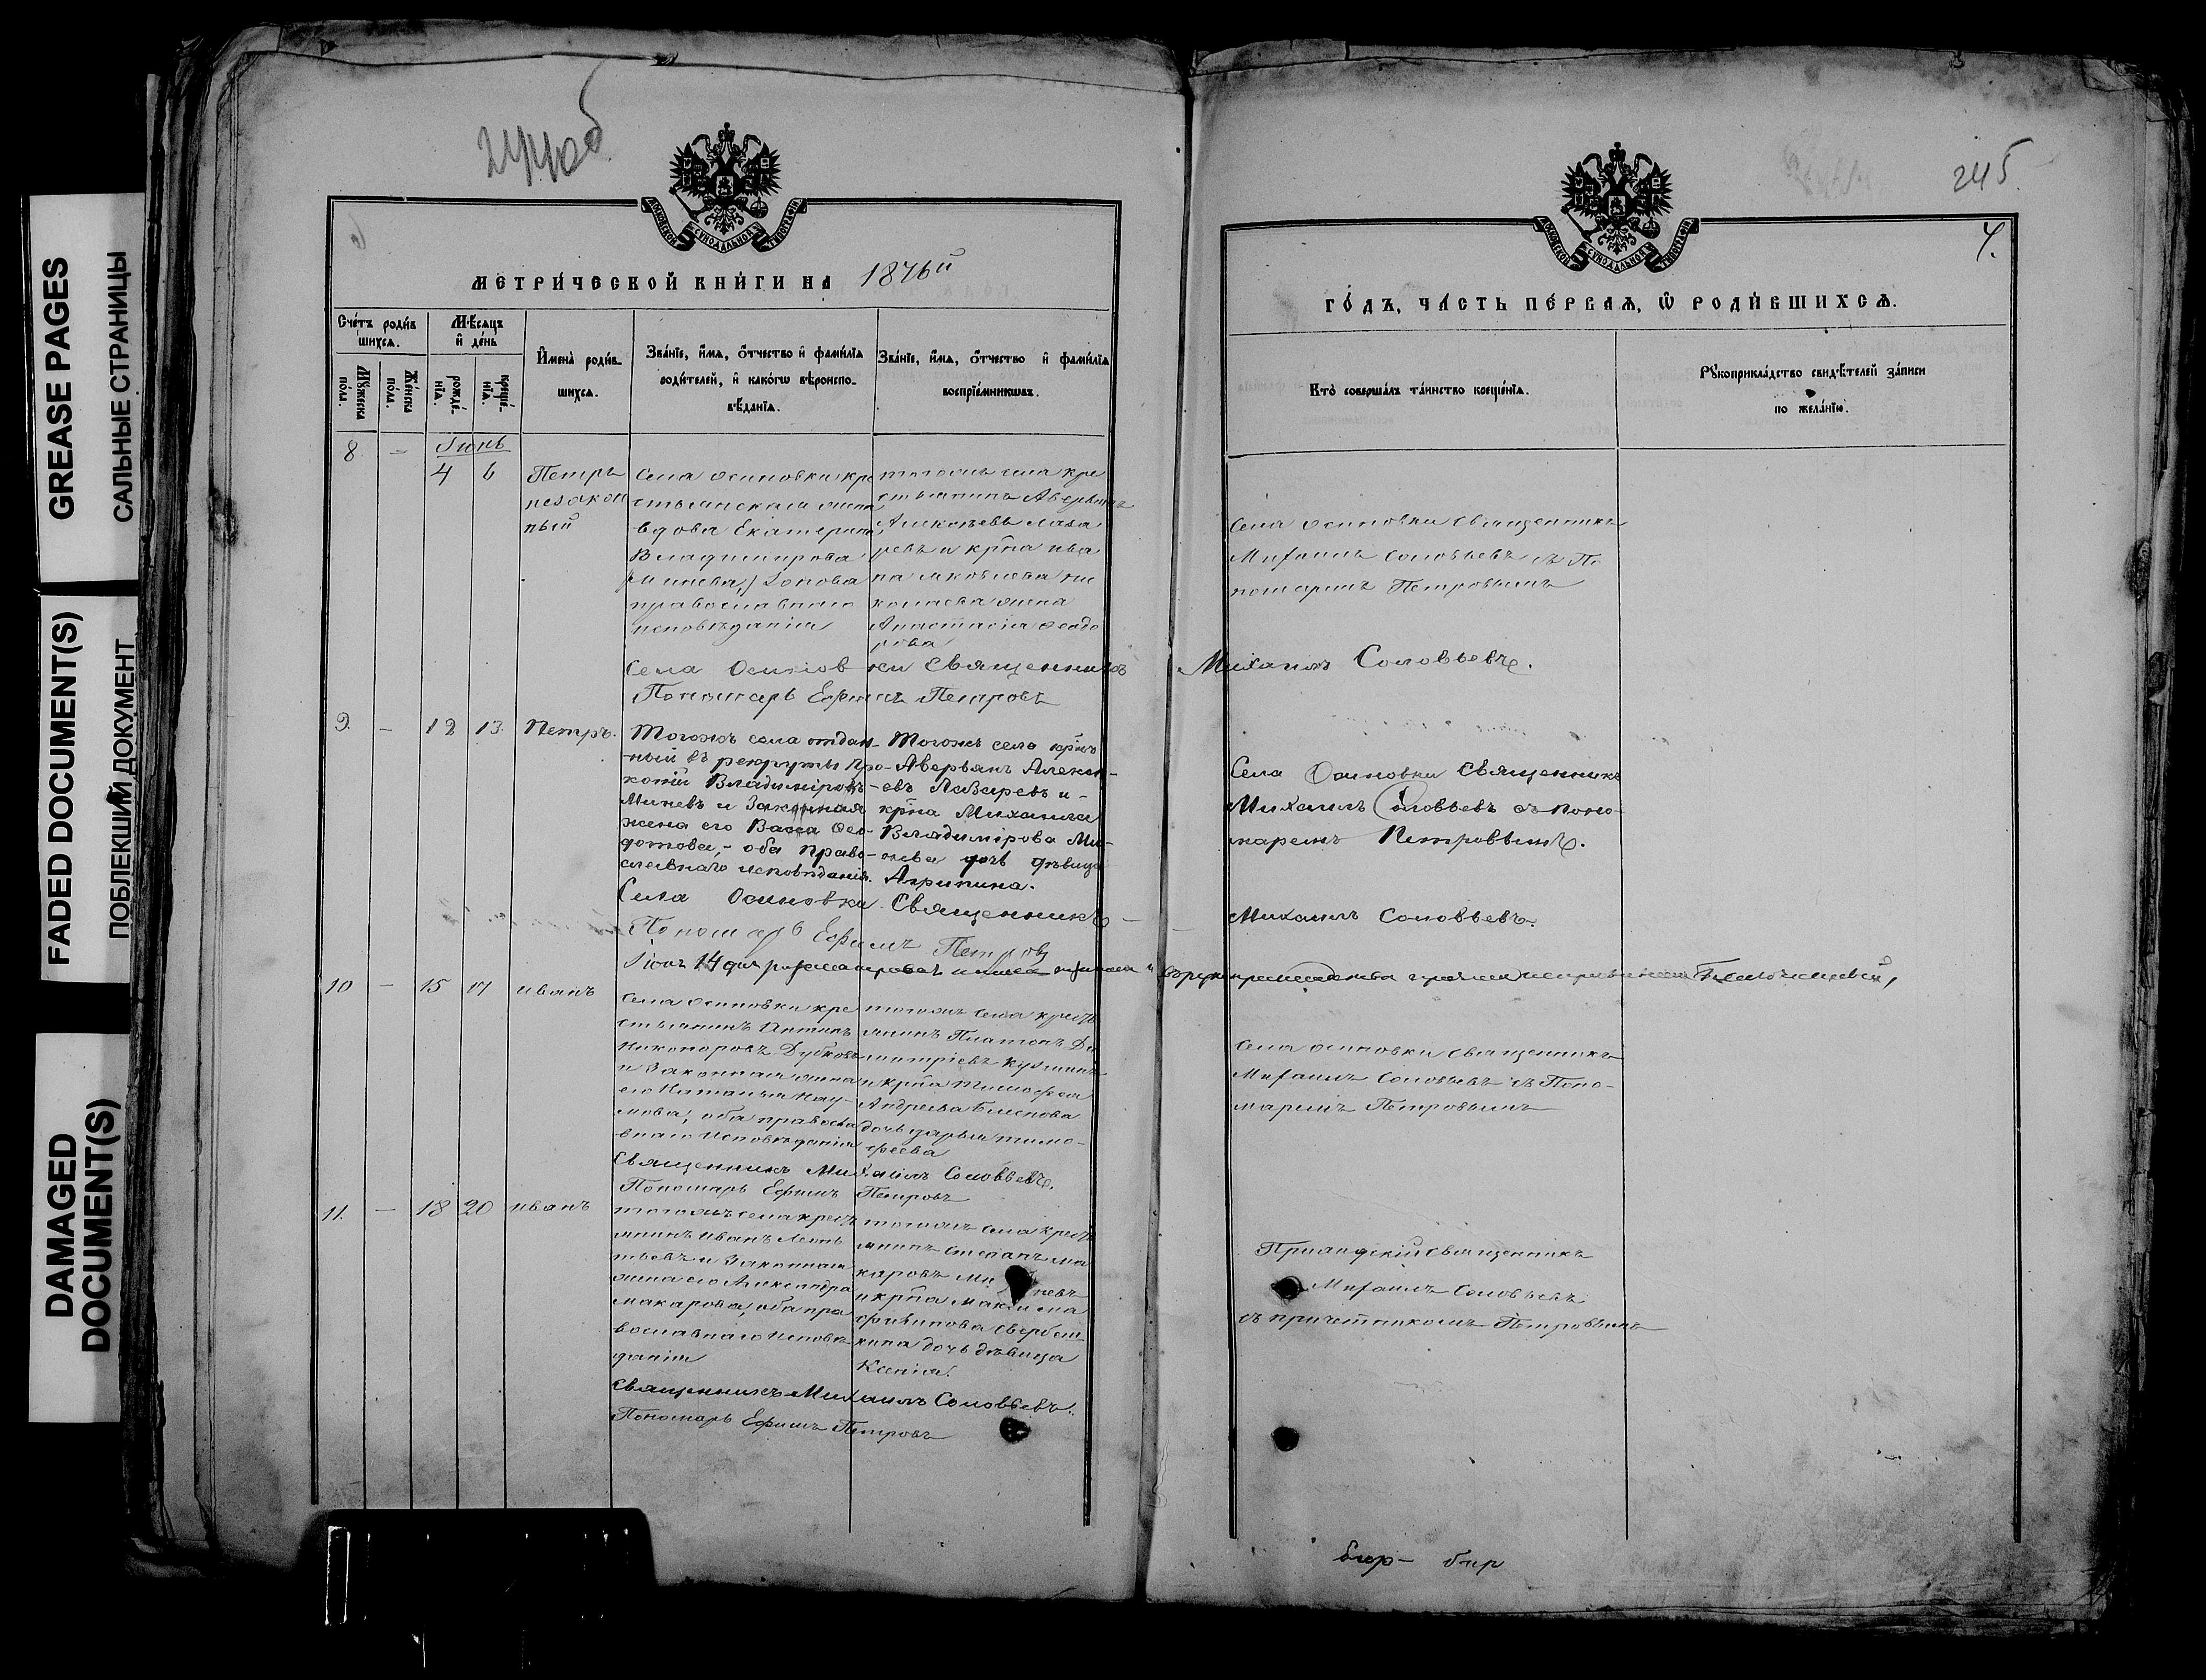 GREASE PAGES
САЛЬНЫЕ СТРАНИЦЫ
FADED DOCUMENT(S)
ПОБЛЕКШИЙ ДОКУМЕНТ
DAMAGED
DOCUMENT(S)
МЕТРИ́ЧЕСКОЙ КНИ́ГИ НА 1876й
Сче́тъ роди́в
шихсѧ.
Мѣ́сѧцъ
и҆ де́нь
И҆мена̀ роди́в-
шихсѧ.
Зва́нїе, и҆́мѧ, ѻ҆́тчество и҆ фами́лїѧ
роди́телей, и҆ како́гѡ вѣроиспо-
вѣ́данїѧ.
Зва́нїе, и҆́мѧ, ѻ҆́тчество и҆ фами́лїѧ
воспрїе́мникѡвъ.
Мꙋ́жеска
по́ла.
Же́нска
по́ла.
рожде́-
нїѧ.
креще́-
нїѧ.
8 - Іюнь
4 6
Петръ
незакон
ный
Села Осиновки кре
стьянская жена
вдова Екатерина
Владимірова
православнаго
исповѣданія
тогожъ села кре
стьянинъ Аверьянъ
Алексѣевъ Лаза
ревъ и крн̃а Ива
на Яковлева
жена
Анастасія Ѳеодо
рова
Села Осиновки Священникъ
Пономарь Ефимъ Петровъ
9. - 12 13. Петръ.
Тогожъ села отдан-
ный въ рекруты Про-
копій Владиміровъ
Миневъ и законная
жена его Васса Ѳео-
дотова, - оба право-
славнаго исповѣданія.
Тогожъ села крн̃ъ
Аверьянъ Алексѣ-
евъ Лазаревъ и -
крн̃а Михаила
Владимірова Ми-
нева дочь дѣвица
Агрипина.
Села Осиновки Священникъ
Пономарь Ефимъ Петровъ
10 - 15 17 иванъ
Села Осиновки кре
стьянинъ Антипъ
Никоноровъ Дубковъ
и законная жена
его Наталья Нау-
мова, оба правосла
внаго исповѣданія
тогожъ села кресть
янинъ Платонъ Ди
митріевъ Кузминъ
и крн̃а Тимоѳея
Андреева
дочь Дарья Тимо-
ѳеева
Священникъ Михаилъ Соловьевъ.
Пономарь Ефимъ Петровъ
11. - 18 20 иванъ
тогожъ села кресть
янинъ Иванъ Леонъ
тьевъ и законная
жена его Александра
Макарова, оба пра
вославнаго исповѣ
данія
тогожъ села кресть
янинъ Степанъ Ма
каровъ Ми невъ
и крн̃а Максима
Филипова
дочь дѣвица
Ксенія.
Священникъ Михаилъ Соловьевъ.
Пономарь Ефимъ Петровъ
245.
7.
ГО́ДЪ, ЧА́СТЬ ПЕ́РВАѦ, Ѡ҆ РОДИ́ВШИХСѦ.
Кто̀ соверша́лъ та́инство креще́нїѧ.
Рꙋкоприкла́дство свидѣ́телей за́писи
по жела́нїю.
Села Осиновки священникъ
Михаилъ Соловьевъ съ По
номаремъ Петровымъ
Михаилъ Соловьевъ.
Села Осиновки Священникъ
Михаилъ Соловьевъ съ поно-
маремъ Петровымъ.
Михаилъ Соловьевъ.
Села Осиновки священникъ
Михаилъ Соловьевъ съ Поно-
маремъ Петровымъ
Приходскій священникъ
Михаилъ Соловьевъ
съ причетникомъ Петровымъ